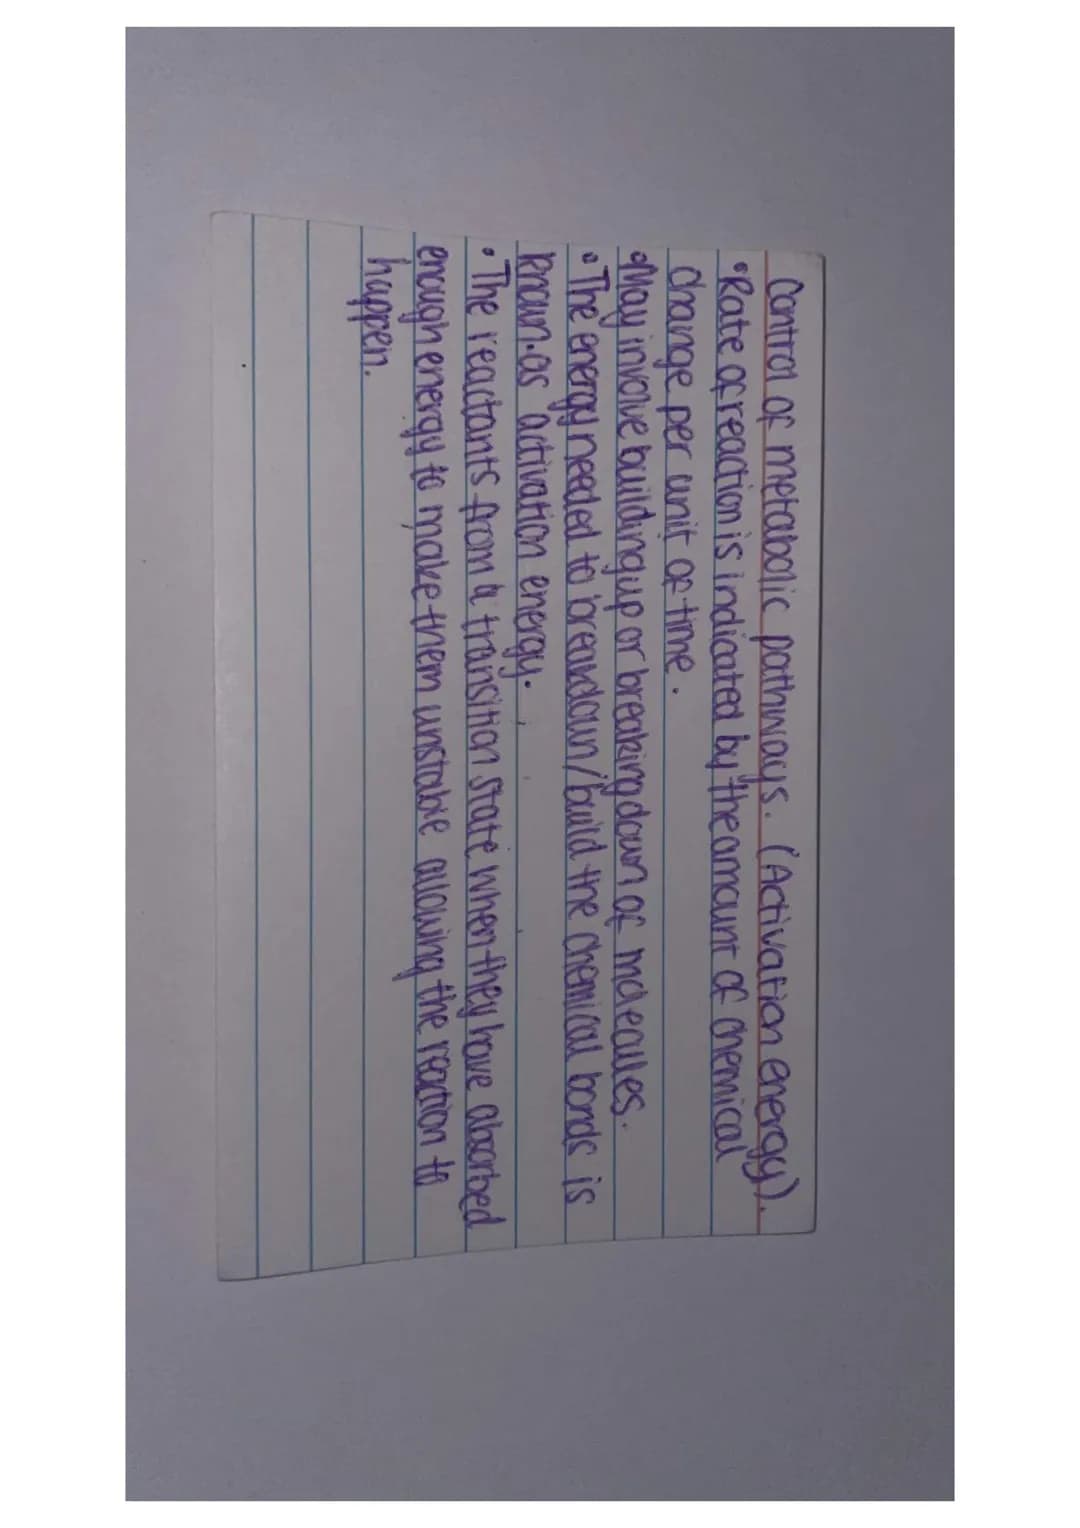 Control of metabolic pathways. (Activation energy).
• Rate of reaction is indicated by the amount of chemical
change per unit of time.
• May involve building up or breaking down of molecules.
• The energy needed to breakdown/build the chemical bonds is
known as activation energy.
• The reactants from a transition state when they have absorbed
enough energy to make them unstable allowing the reaction to
happen.